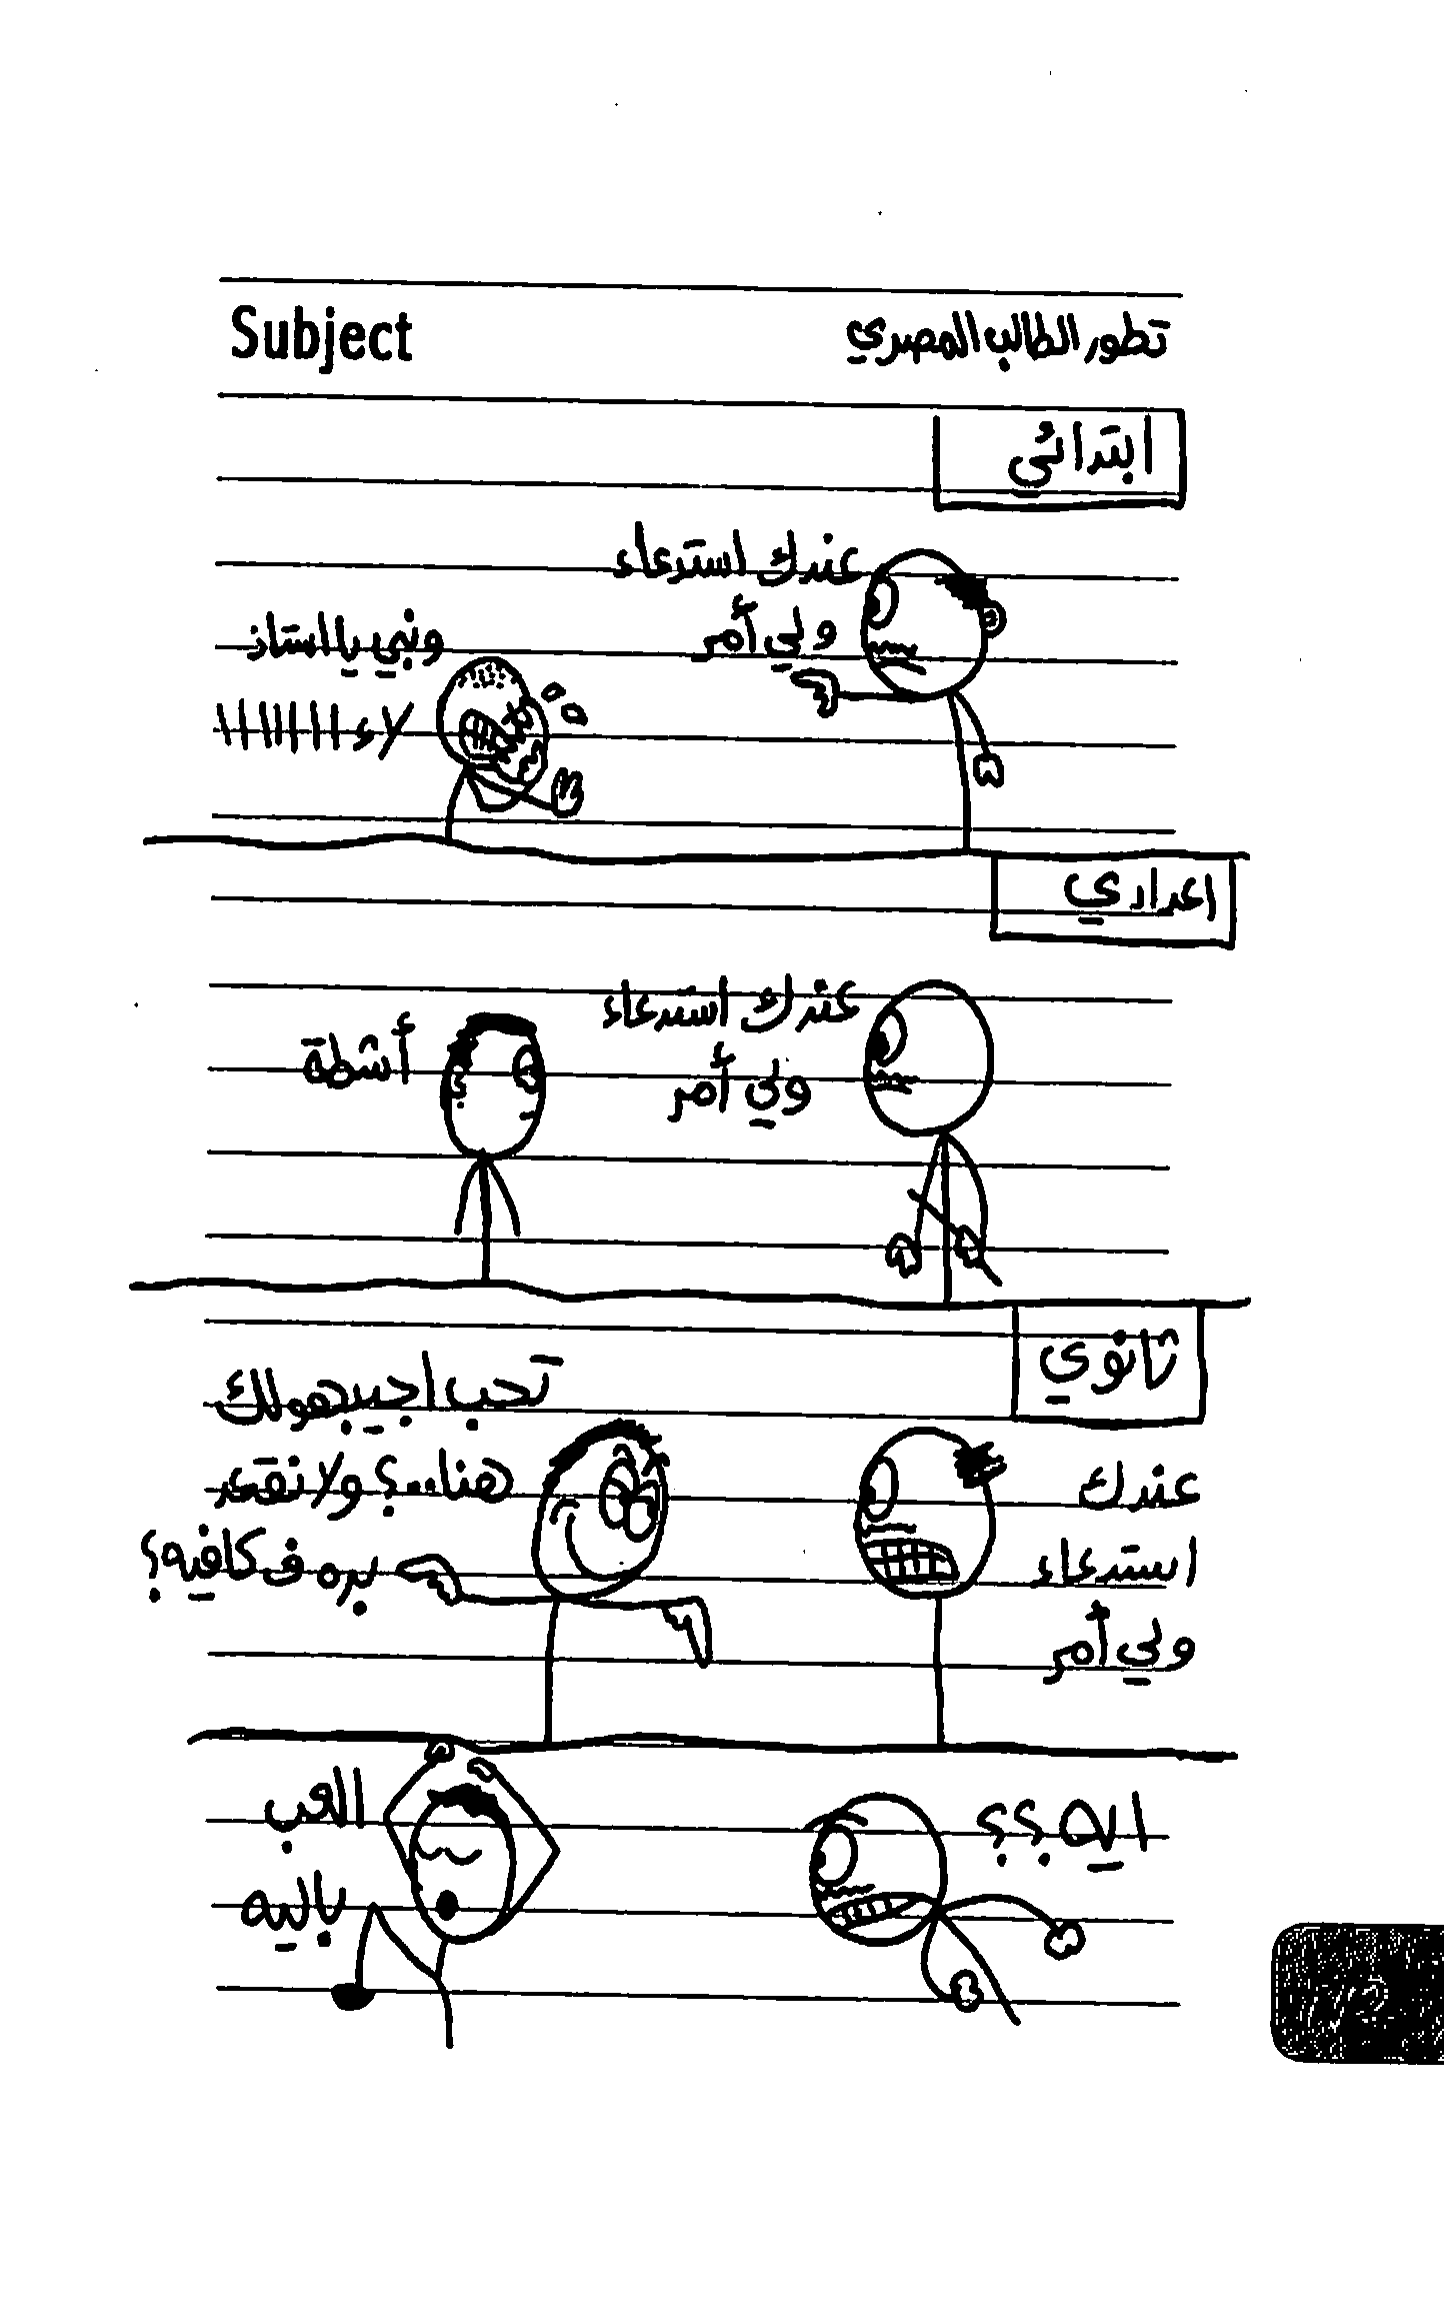 Subject
تطور الطالب المصري
ابتدائي
عندك استدعاء
ولي أمر
ونبي يا استاذ
لاء اااااااا
اعدادي
عندك استدعاء
ولي أمر
أشطة
ثانوي
عندك
استدعاء
ولي أمر
تحب اجيبهولك
هنا..؟ ولا نقعد
بره ف كافيه؟
ايه؟؟
العب
باليه